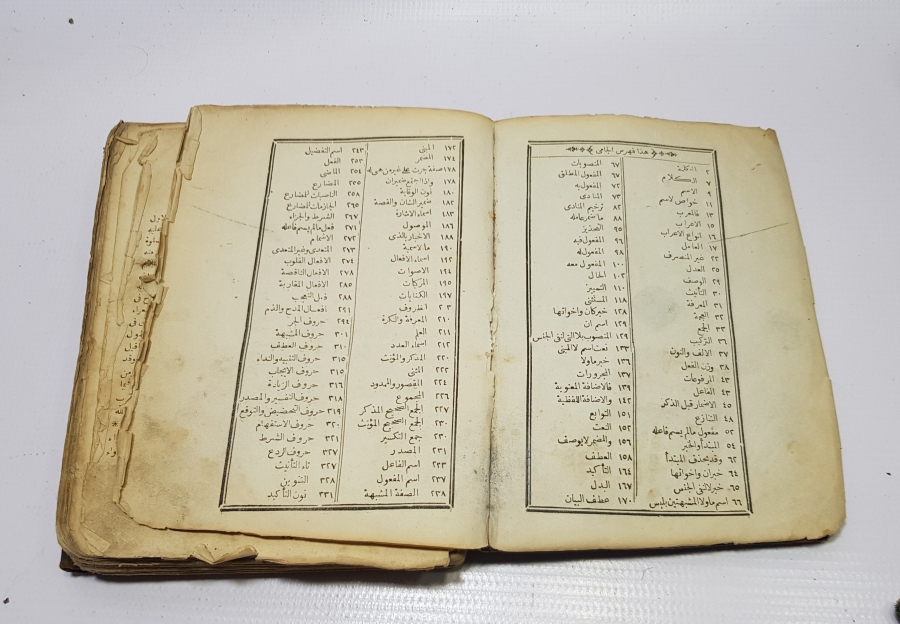 هذا فهرس الجامى
٢ الكلمة
٧ الكلام
٩ الاسم
١١ خواص الاسم
١٣ فالمعرب
١٥ الاعراب
١٦ انواع الاعراب
١٧ العامل
٢٢ غير المنصرف
٢٥ العدل
٢٩ الوصف
٣٠ التأنيث
٣١ المعرفة
٣٢ العجمة
٣٣ الجمع
٣٦ التركيب
٣٧ الالف والنون
٣٨ وزن الفعل
٤٣ المرفوعات
٤٣ الفاعل
٤٥ الاضمار قبل الذكر
٤٨ التنازع
٥٢ مفعول مالم يسم فاعله
٥٤ المبتدأ والخبر
٦٢ وقد يحذف المبتدأ
٦٤ خبران واخواتها
٦٥ خبر لالنفى الجنس
٦٦ اسم ماولا المشبهتين بليس
٦٧ المنصوبات
٦٧ المفعول المطلق
٧٢ المفعول به
٧٣ المنادى
٨٢ ترخيم المنادى
٨٨ ما ضمر عامله
٩٥ التحذير
٩٦ المفعول فيه
٩٨ المفعول له
١٠٠ المفعول معه
١٠٢ الحال
١١٠ التمييز
١١٨ المستثنى
١٢٨ خبر كان واخواتها
١٢٩ اسم ان
١٢٩ المنصوب بلا التى لنفى الجنس
١٣٣ نعت اسم لا المبنى
١٣٦ خبر ماولا
١٣٧ المجرورات
١٣٩ فالاضافة المعنوية
١٤٢ والاضافة اللفظية
١٥١ التوابع
١٥٢ النعت
١٥٦ والمضمر لايوصف
١٥٨ العطف
١٦٤ التأكيد
١٦٧ البدل
١٧٠ عطف البيان
١٧٢ المبنى
١٧٤ المضمر
١٧٨ صفة جرت على غير من هى له
١٧٨ واذا اجتمع ضميران
١٨٠ نون الوقاية
١٨٢ ضمير الشان والقصة
١٨٣ اسماء الاشارة
١٨٦ الموصول
١٨٨ الاخبار بالذى
١٩٠ ما الاسمية
١٩٢ اسماء الافعال
١٩٤ الاصوات
١٩٥ المركبات
١٩٧ الكنايات
٢٠٣ الظروف
٢١٠ المعرفة والنكرة
٢١١ العلم
٢١٢ اسماء العدد
٢٢٠ المذكر والمؤنث
٢٢٢ المثنى
٢٢٤ المقصور والممدود
٢٢٦ المجموع
٢٢٧ الجمع الصحيح المذكر
٢٣٠ الجمع الصحيح المؤنث
٢٣٠ جمع التكسير
٢٣١ المصدر
٢٣٣ اسم الفاعل
٢٣٧ اسم المفعول
٢٣٨ الصفة المشبهة
٢٤٣ اسم التفضيل
٢٥٢ الفعل
٢٥٤ الماضى
٢٥٥ المضارع
٢٥٨ الناصبات للمضارع
٢٦٥ الجازمات للمضارع
٢٦٧ الشرط والجزاء
٢٧١ فعل مالم يسم فاعله
٢٧٢ الاشمام
٢٧٣ المتعدى وغير المتعدى
٢٧٤ الافعال القلوب
٢٧٨ الافعال الناقصة
٢٨٥ الافعال المقاربة
٢٨٨ فعل التعجب
٢٩١ افعال المدح والذم
٢٩٤ حروف الجر
٣٠١ حروف المشبهة
٣١٠ حروف العطف
٣١٥ حروف التنبيه والنداء
٣١٥ حروف الايجاب
٣١٦ حروف الزيادة
٣١٨ حروف التفسير والمصدر
٣١٩ حروف التحضيض والتوقع
٣٢٠ حروف الاستفهام
٣٢١ حروف الشرط
٣٢٧ حروف الردع
٣٢٧ تاء التأنيث
٣٢٨ التنوين
٣٣١ نون التأكيد